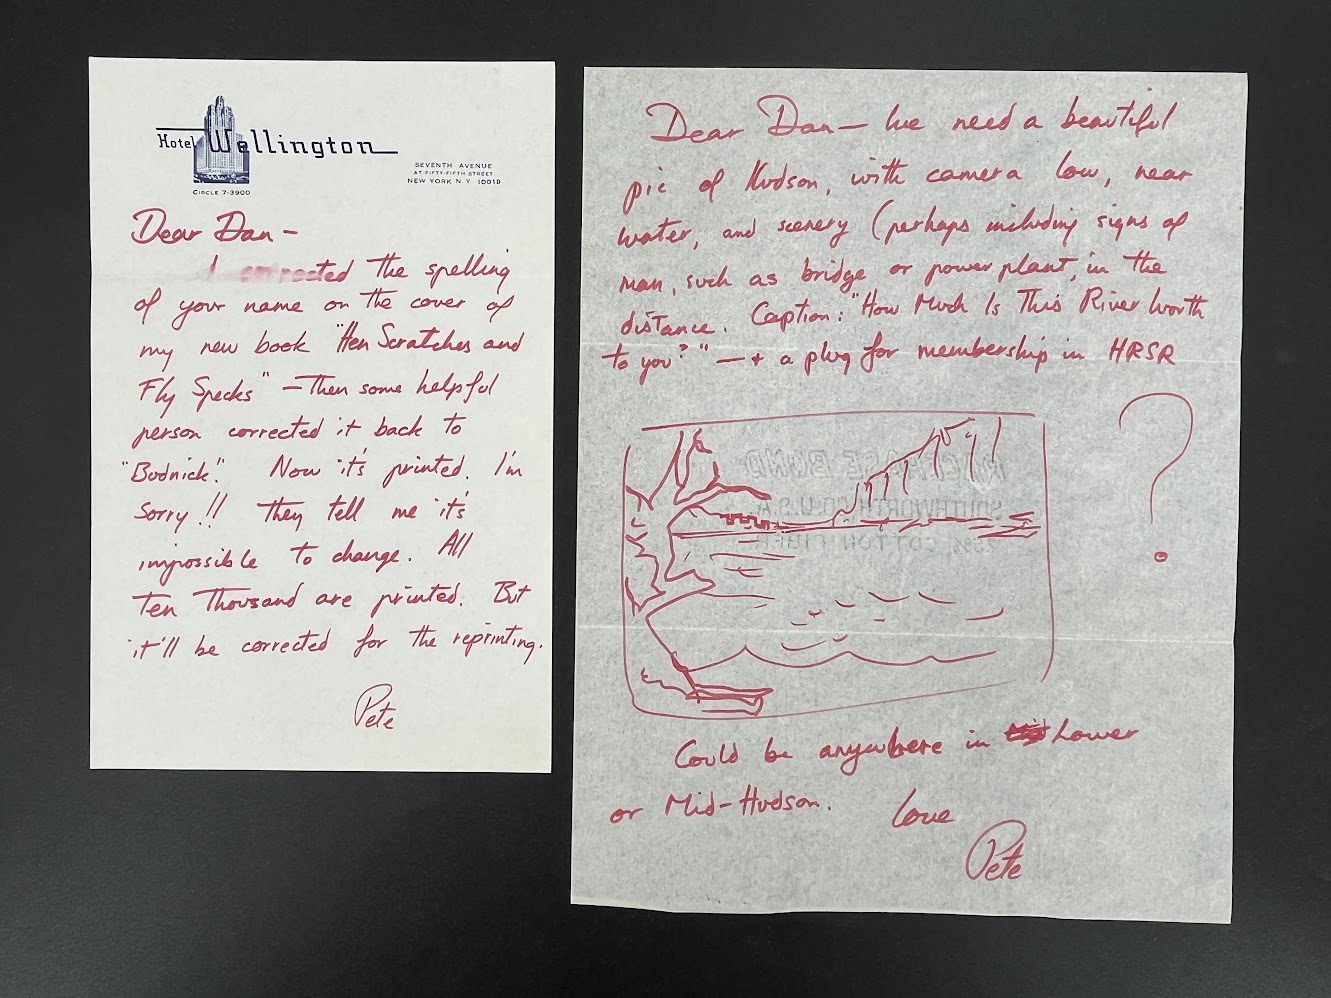 Hotel Wellington
SEVENTH AVENUE
AT FIFTY-FIFTH STREET
NEW YORK N.Y. 10019
CIRCLE 7-3900
Dear Dan —
I corrected the spelling
of your name on the cover of
my new book "Hen Scratches and
Fly Specks" — Then some helpful
person corrected it back to
"Bodnick". Now it's printed. I'm
sorry!! They tell me it's
impossible to change. All
Ten Thousand are printed. But
it'll be corrected for the reprinting.
Pete
Dear Dan — We need a beautiful
pic of Hudson, with camera low, near
water, and scenery (perhaps including signs of
man, such as bridge or power plant, in the
distance. Caption: "How Much Is This River Worth
to you?" — + a plug for membership in HRSR
?
SOUTHWORTH CO. U.S.A.
25% COTTON FIBER
Could be anywhere in Lower
or Mid-Hudson.
Love
Pete